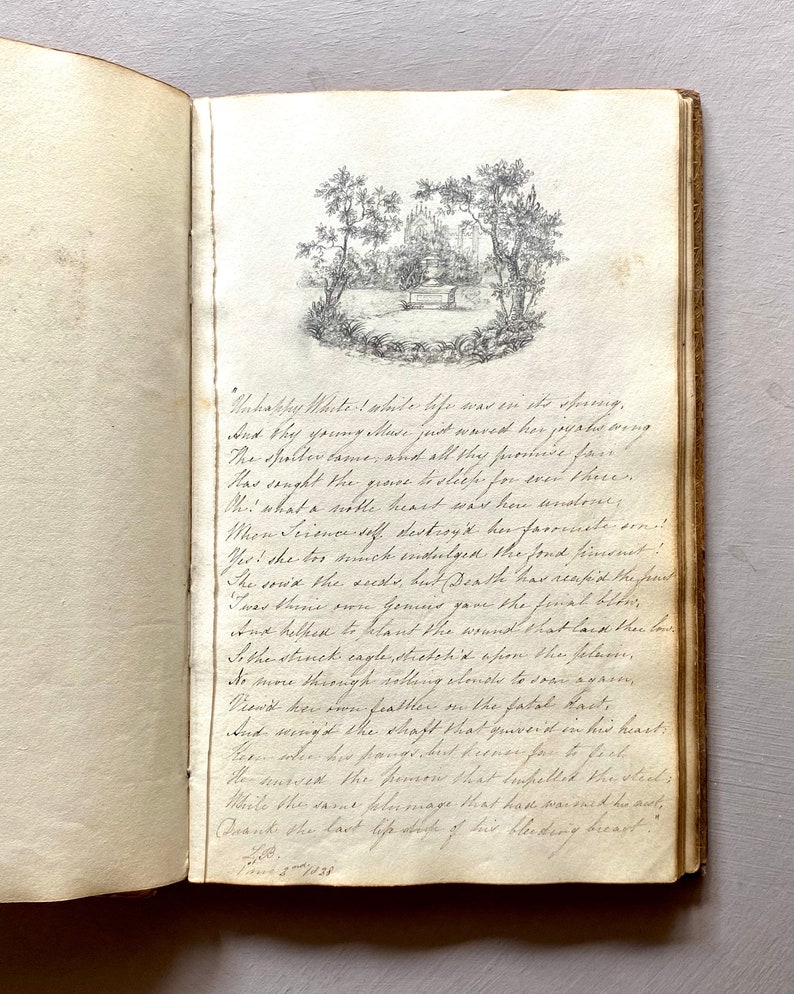 "Unhappy White! while life was in its spring,
And thy young Muse just waved her joyous wing
The spoiler came; and all thy promise fair
Has sought the grave to sleep for ever there.
Oh! what a noble heart was here undone,
When Science self destroy'd her favourite son!
Yes! she too much indulged the fond pursuit!
She sow'd the seeds, but Death has reap'd the fruit
'Twas thine own Genius gave the final blow,
And helped to plant the wound that laid thee low.
So the struck eagle, stretch'd upon the plain,
No more through rolling clouds to soar again,
View'd her own feather on the fatal dart,
And wing'd the shaft that quiver'd in his heart;
Keen were his pangs, but keener far to feel
He nursed the pinion that impelled the steel;
While the same plumage that had warmed his nest,
Drank the last life drop of his bleeding breast."
L.B.
June 3nd 1838